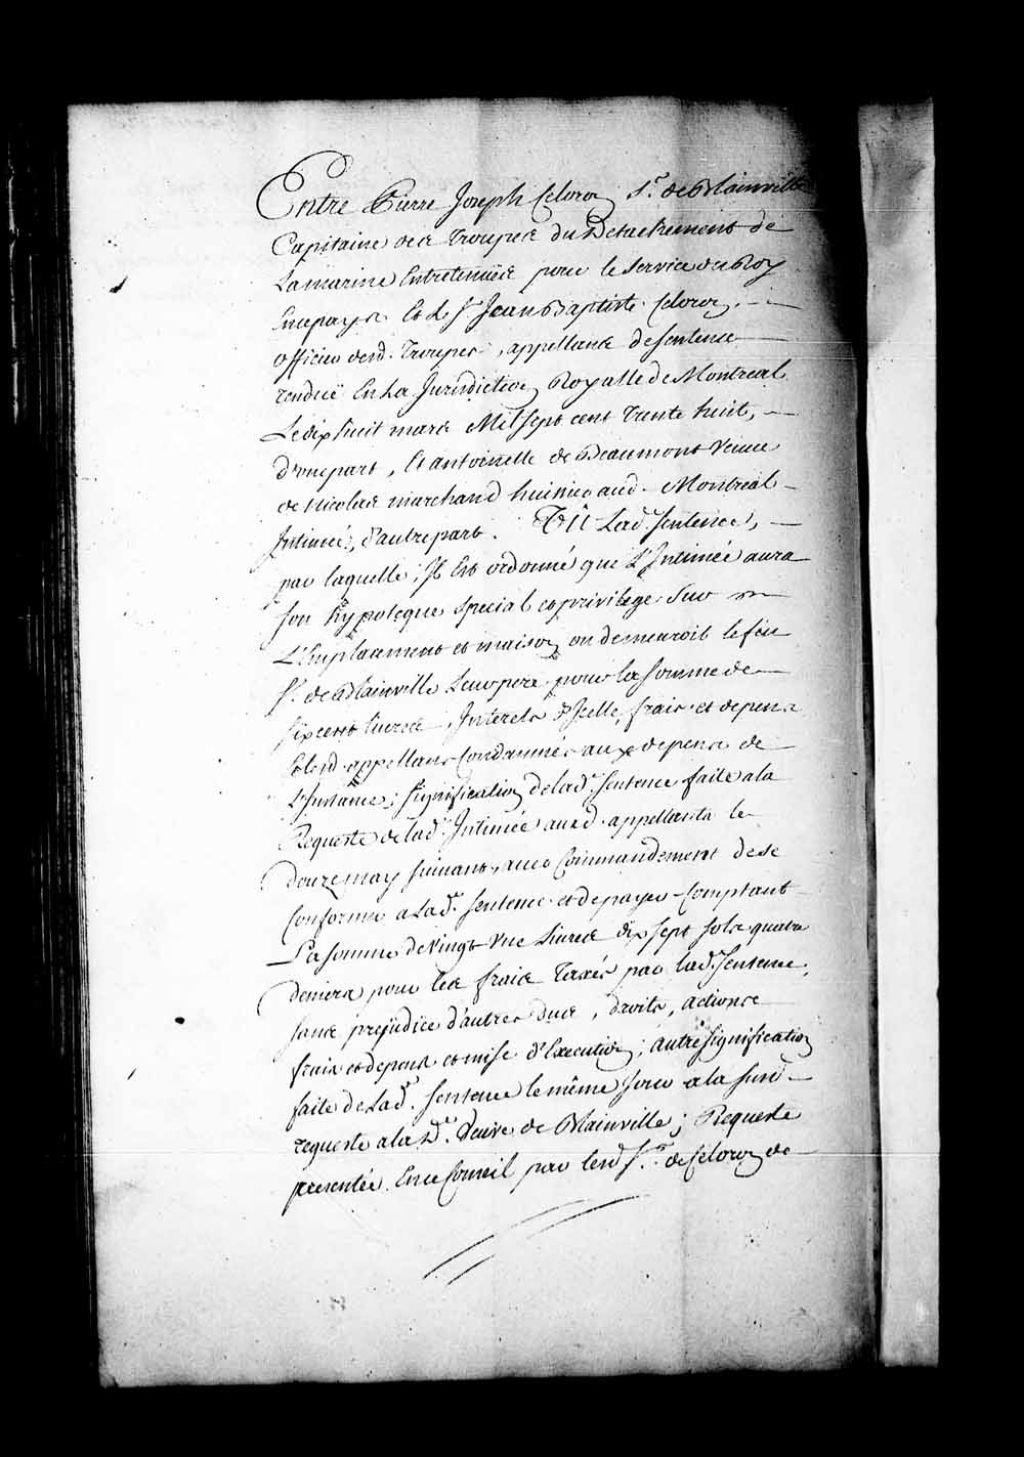 Entre Pierre Joseph Celoron Sr. de Blainville
Capitaine des Troupes du Detachement de
Lamarine Entretenües pour le Service du Roy
Encepays Et Le Sr. Jean Baptiste Celoron
officier desd. Troupes, appellans de Sentence
rendue En La Jurisdiction Royalle de Montreal
Ledixhuit mars Mil Sept cent trente huit,
d'une part, Et antoinette de Beaumont Veuve
de Nicolas marchand huissier aud. Montreal
Intimée, d'autre part. Vû Lade. Sentence,
par laquelle; Il Est ordonné que L'Intimée aura
Son hypoteque Special et privilege Sur
L'Emplacement et maison ou demeuroit le feu
Sr. de Blainville Leur pere pour la Somme de
Six cent livres, Interets d'Icelle, frais et depens
Et lesd. appellans Condamnés aux depens de
L'Instance; Signification de lade. Sentence faite a la
Requeste de lade. Intimée auxd. appellants le
douze may Suivant, avec Commandement de se
Conformer a Lade. Sentence et de payer Comptant
La Somme de Vingt Une Livres dix Sept Sols quatre
deniers pour les frais Taxés par lade. Sentence,
Sans prejudice d'autres dues, droits, actions
frais et depens et mise d'Execution; autre Signification
faite de Lade. Sentence le même Jour a la Susd.
requeste a la De. Veuve de Blainville; Requeste
presentée En ce Conseil par lesd. Srs. de Celoron de